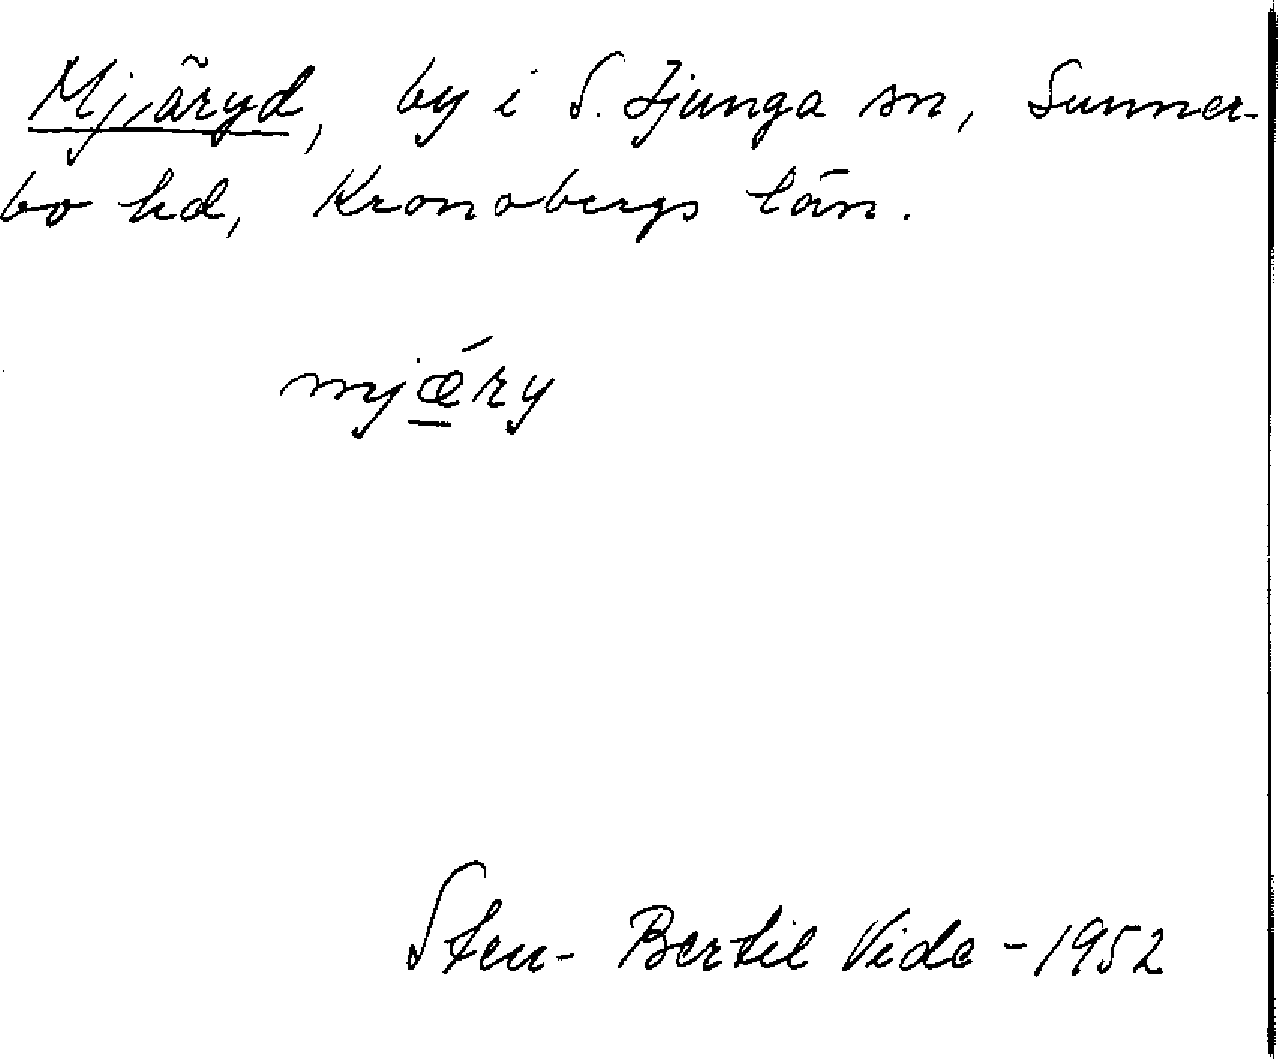 Mjäryd, by i S. Ljunga sn, Sunner-
bo hd, Kronobergs län.
mjǽ̲ry
Sten-Bertil Vide - 1952